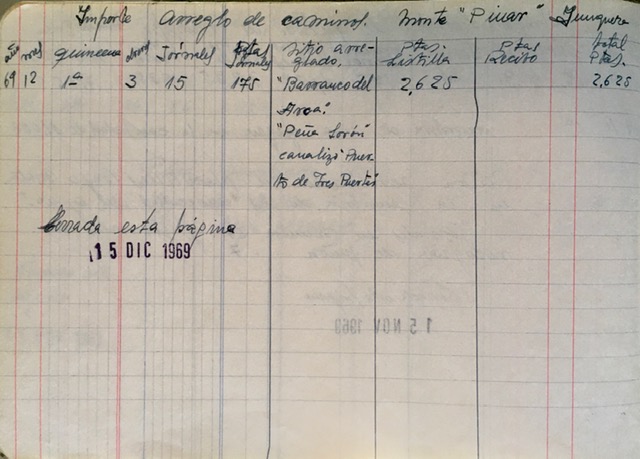 Importe Arreglo de caminos. Monte "Pinar" Yunquera
año mes quincena obreros Jornales Ptas Jornales Sitio arreglado. Ptas. Listilla Ptas Recibo total Ptas.
69 12 1ª 3 15 175 "Barranco del 2,625 2,625
Arca."
"Peña
canalizó Puer-
to de Tres Puertas
Cerrada esta página
15 DIC 1969
15 NOV 1969